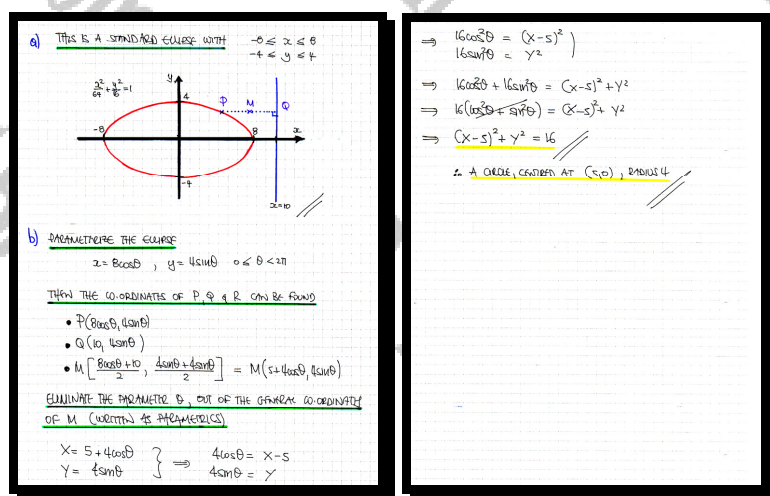 a) THIS IS A STANDARD ELLIPSE WITH -8 ≤ x ≤ 8
-4 ≤ y ≤ 4
x²/64 + y²/16 = 1
y
4
P M Q
-8
8
x
-4
x=10
b) PARAMETRIZE THE ELLIPSE
x = 8cosθ , y = 4sinθ 0 ≤ θ < 2π
THEN THE CO-ORDINATES OF P, Q & R CAN BE FOUND
• P(8cosθ, 4sinθ)
• Q(10, 4sinθ)
• M[(8cosθ+10)/2, (4sinθ+4sinθ)/2] = M(5+4cosθ, 4sinθ)
ELIMINATE THE PARAMETER θ, OUT OF THE GENERAL CO-ORDINATES
OF M (WRITTEN AS PARAMETRICS)
X = 5+4cosθ } ⇒ 4cosθ = X-5
Y = 4sinθ 4sinθ = Y
⇒ 16cos²θ = (X-5)² )
16sin²θ = Y²
⇒ 16cos²θ + 16sin²θ = (X-5)² + Y²
⇒ 16(cos²θ + sin²θ) = (X-5)² + Y²
⇒ (X-5)² + Y² = 16
∴ A CIRCLE, CENTRED AT (5,0), RADIUS 4